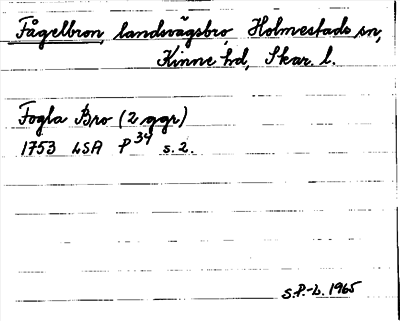 Fågelbron, landsvägsbro Holmestads sn,
Kinne hd, Skar. l.
Fogla Bro (2 ggr)
1753 LSA P 34 s. 2.
S.P.-L. 1965